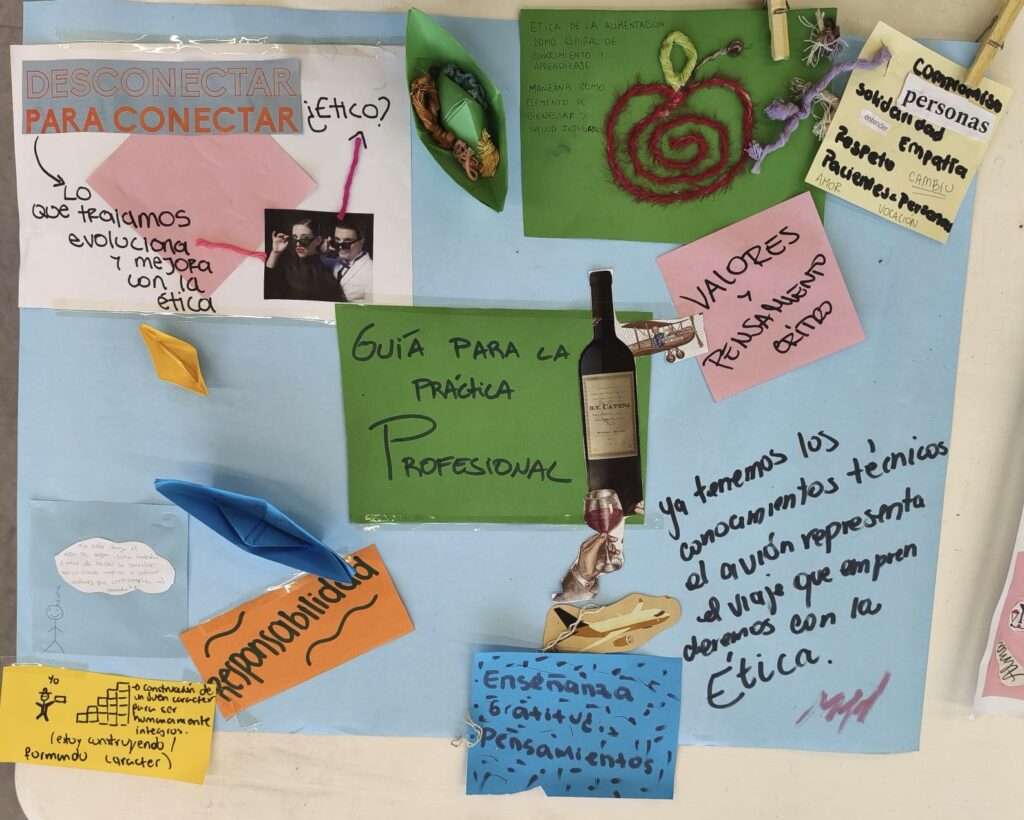 DESCONECTAR
PARA CONECTAR
¿Ético?
Lo
que traíamos
evoluciona
y mejora
con la
ética
ETICA DE LA ALIMENTACIÓN
COMO ESPIRAL DE
CONOCIMIENTO Y
APRENDIZAJE
MANZANA COMO
ELEMENTO DE
BIENESTAR Y
SALUD INTEGRAL
Compromiso
personas
Solidaridad
entender
Empatia
Respeto
CAMBIU
Pacientes de Personas
AMOR
VOCACION
VALORES
Y
PENSAMIENTO
CRÍTICO
GUÍA PARA LA
PRÁCTICA
PROFESIONAL
D.V. CATENA
ya tenemos los
conocimientos técnicos
el avión representa
el viaje que empren
deremos con la
Ética.
Responsabilidad
yo
construcción de
un buen carácter
para ser
humanamente
integros.
(estoy construyendo /
formando carácter)
Enseñanza
Gratitud,
Pensamientos